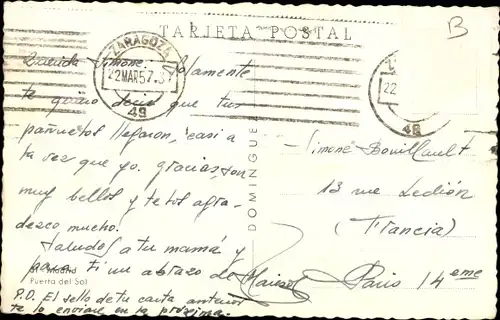 TARJETA POSTAL
B
ZARAGOZA
22 MAR 57.3
49
22
49
Querida Simone. Solamente
te quiero decir que tus
pañuelos llegaron, casi a
la vez que yo. gracias, son
muy bellos y te los agra-
desco mucho.
Saludos a tu mamá y
para ti un abrazo de Marisol
P.D. El sello de tu carta anterior
te lo enviaré en la próxima.
Madrid
Puerta del Sol
DOMINGUEZ
Simone Bouillault
13 rue Ledion
(Francia)
Paris 14eme